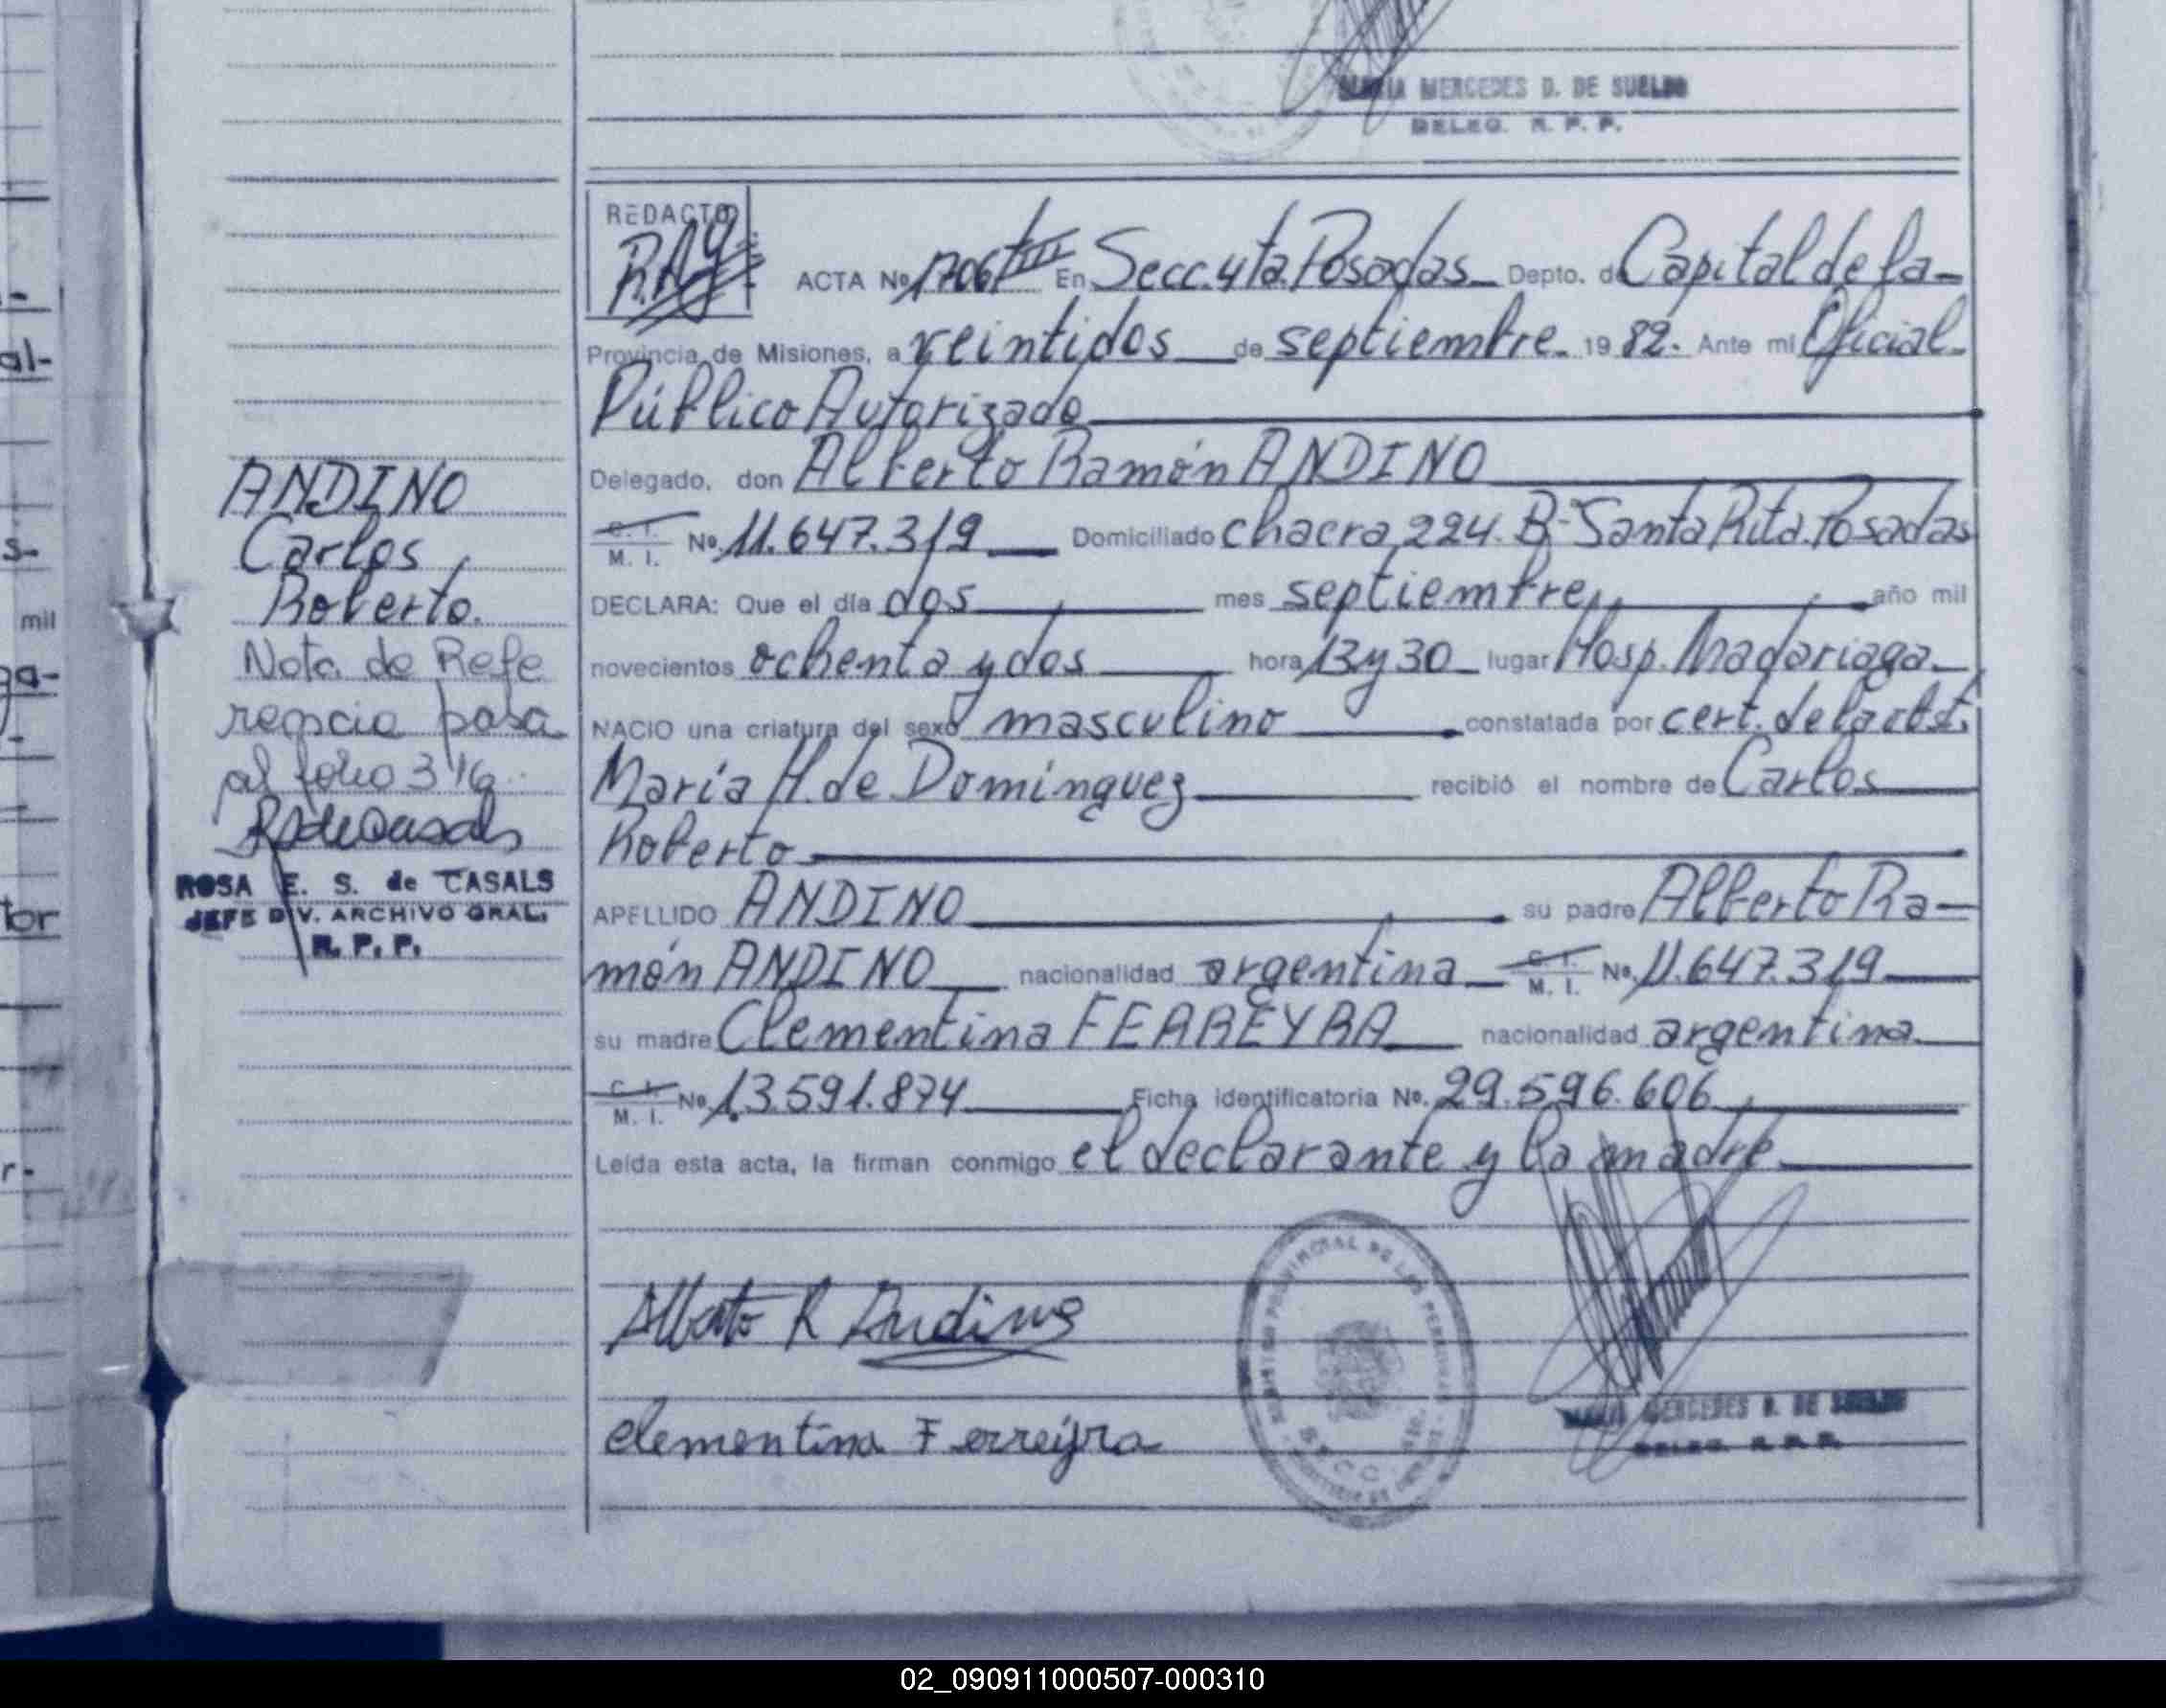 MARIA MERCEDES D. DE SUELDO
DELEG. R. P. P.
REDACTO
ACTA No. 1706 En Secc. 4ta. Posadas Depto. de Capital de la
Provincia de Misiones, a veintidos de septiembre 1982. Ante mi Oficial
Público Autorizado
Delegado, don Alberto Ramón ANDINO
C. I. M. I. No. 11.647.319 Domiciliado chacra 224. Bº Santa Rita. Posadas
DECLARA: Que el día dos mes septiembre año mil
novecientos ochenta y dos hora 13 y 30 lugar Hosp. Madariaga
NACIO una criatura del sexo masculino constatada por cert. de la obst.
María H. de Domínguez recibió el nombre de Carlos
Roberto
APELLIDO ANDINO su padre Alberto Ra-
món ANDINO nacionalidad argentina C. I. M. I. No. 11.647.319
su madre Clementina FERREYRA nacionalidad argentina
C. I. M. I. No. 13.591.874 Ficha identificatoria No. 29.596.606
Leída esta acta, la firman conmigo el declarante y la madre
Alberto R Andino
clementina Ferreyra
MARIA MERCEDES D. DE SUELDO
DELEG. R. P. P.
ANDINO
Carlos
Roberto.
Nota de Refe
rencia pasa
al folio 316
ROSA E. S. de CASALS
JEFE DIV. ARCHIVO GRAL.
R. P. P.
al-
s-
mil
ga-
tor
r-
02_090911000507-000310